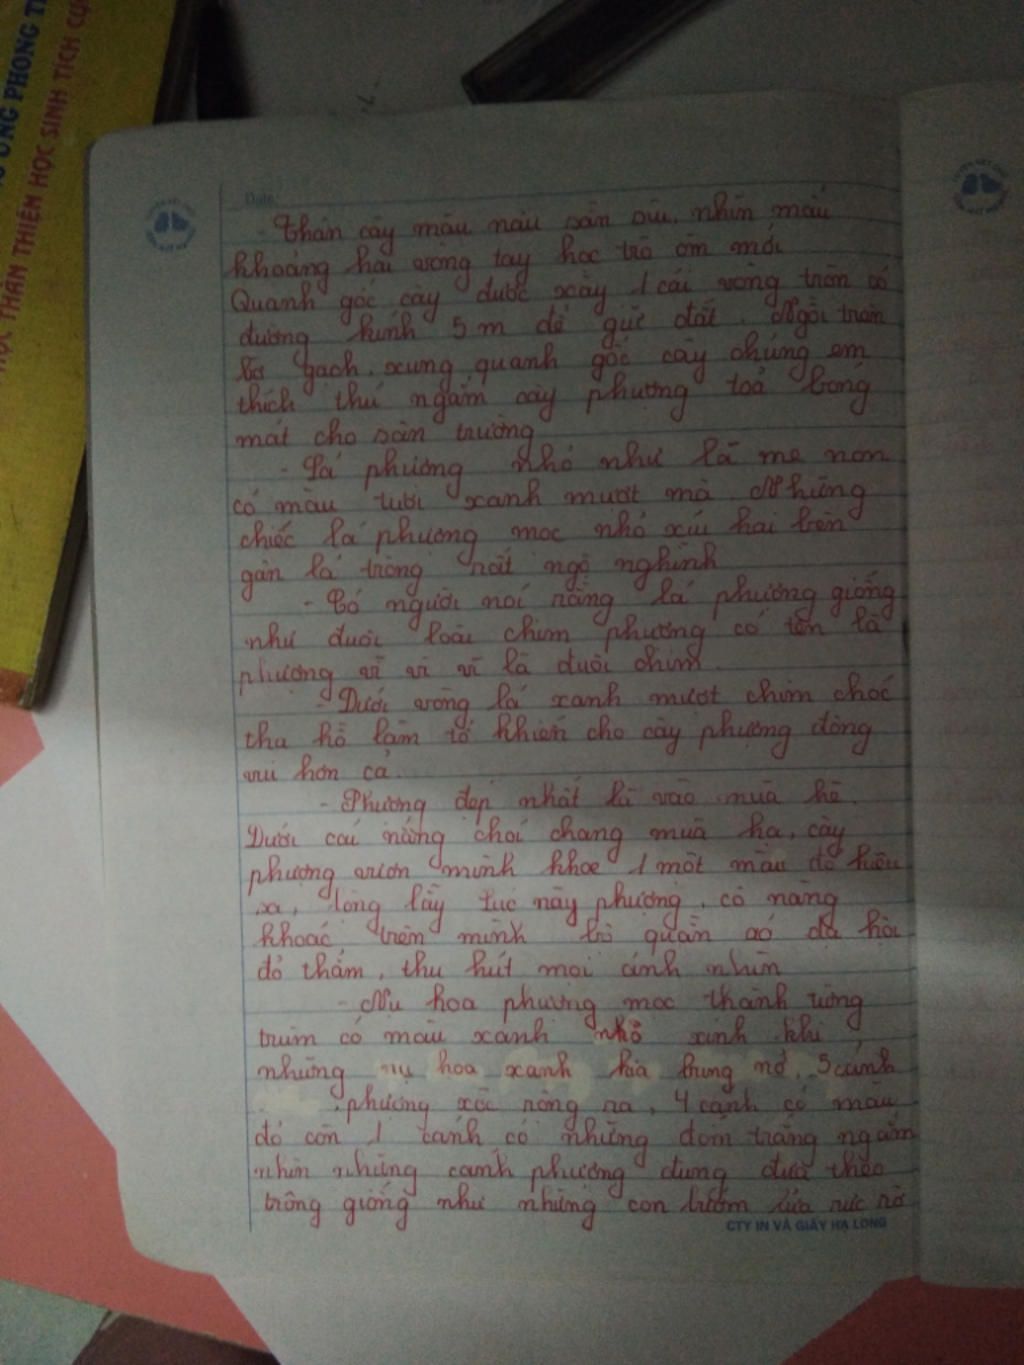 ỨNG PHONG T
HỌC THÂN THIỆN HỌC SINH TÍCH CỰ
Date:
- Thân cây màu nâu sần sùi, nhìn mẫu
khoảng hai vòng tay học trò ôm mới
Quanh gốc cây được xây 1 cái vòng tròn có
đường kính 5 m để giữ đất. Ngồi trên
bờ gạch, xung quanh gốc cây chúng em
thích thú ngắm cây phượng toả bóng
mát cho sân trường
- Lá phượng nhỏ như lá me non
có màu tươi xanh mượt mà. Những
chiếc lá phượng mọc nhỏ xíu hai bên
gân lá trông rất ngộ nghĩnh
- Có người nói rằng lá phượng giống
như đuôi loài chim phượng có tên là
phượng vĩ vì vĩ là đuôi chim.
- Dưới vòng lá xanh mượt chim chóc
tha hồ làm tổ khiến cho cây phượng đông
vui hơn cả.
- Phượng đẹp nhất là vào mùa hè.
Dưới cái nắng chói chang mùa hạ, cây
phượng vươn mình khoe 1 một màu đỏ kiêu
sa, lộng lẫy lúc này phượng, cô nàng
khoác trên mình bộ quần áo dạ hội
đỏ thắm, thu hút mọi ánh nhìn
- Nụ hoa phượng mọc thành từng
trùm có màu xanh nhỏ xinh khi
những nụ hoa xanh kia bung nở, 5 cánh
phượng xòe rộng ra, 4 cánh có màu
đỏ còn 1 cánh có những đốm trắng ngắm
nhìn những cánh phượng đung đưa theo
trông giống như những con bướm lửa rực rỡ
CTY IN VÀ GIẤY HẠ LONG